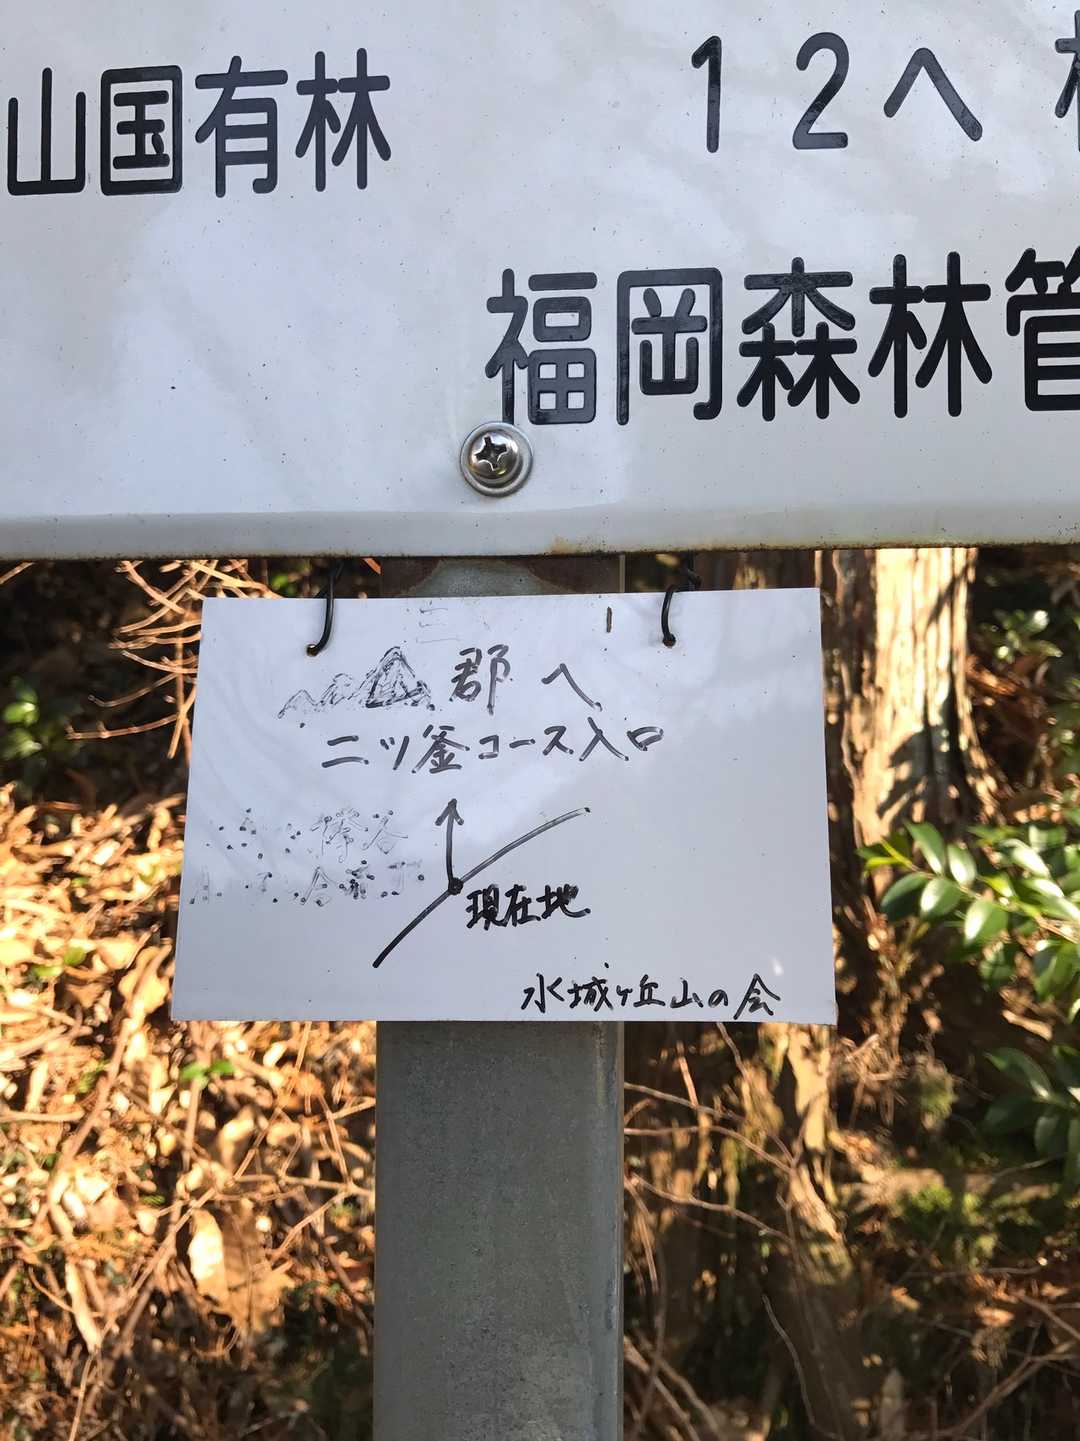 山国有林 12へ
福岡森林管
三
郡へ
二ツ釜コース入口
現在地
水城ヶ丘山の会